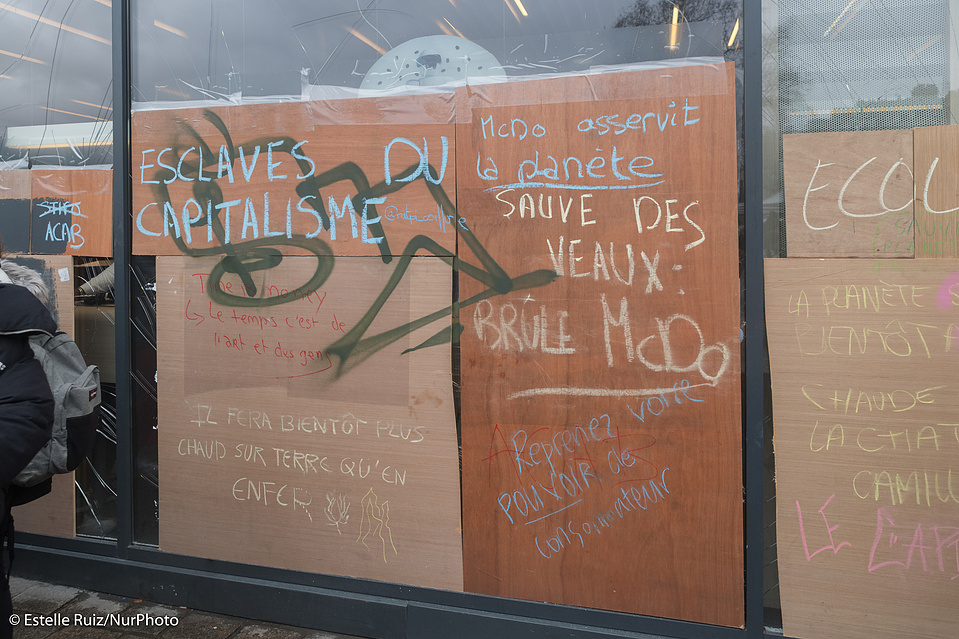 ACAB
ESCLAVES DU
CAPITALISME
Time is money
Le temps c'est de
l'art et des gens
IL FERA BIENTÔT PLUS
CHAUD SUR TERRE QU'EN
ENFER
McDo asservit
la planète
SAUVE DES
VEAUX :
BRÛLE McDo
Reprenez votre
pouvoir de
consommateur
ECOL
LA PLANÈTE S
BIENTÔT
CHAUDE
LA CHAT
CAMILL
LE
© Estelle Ruiz/NurPhoto